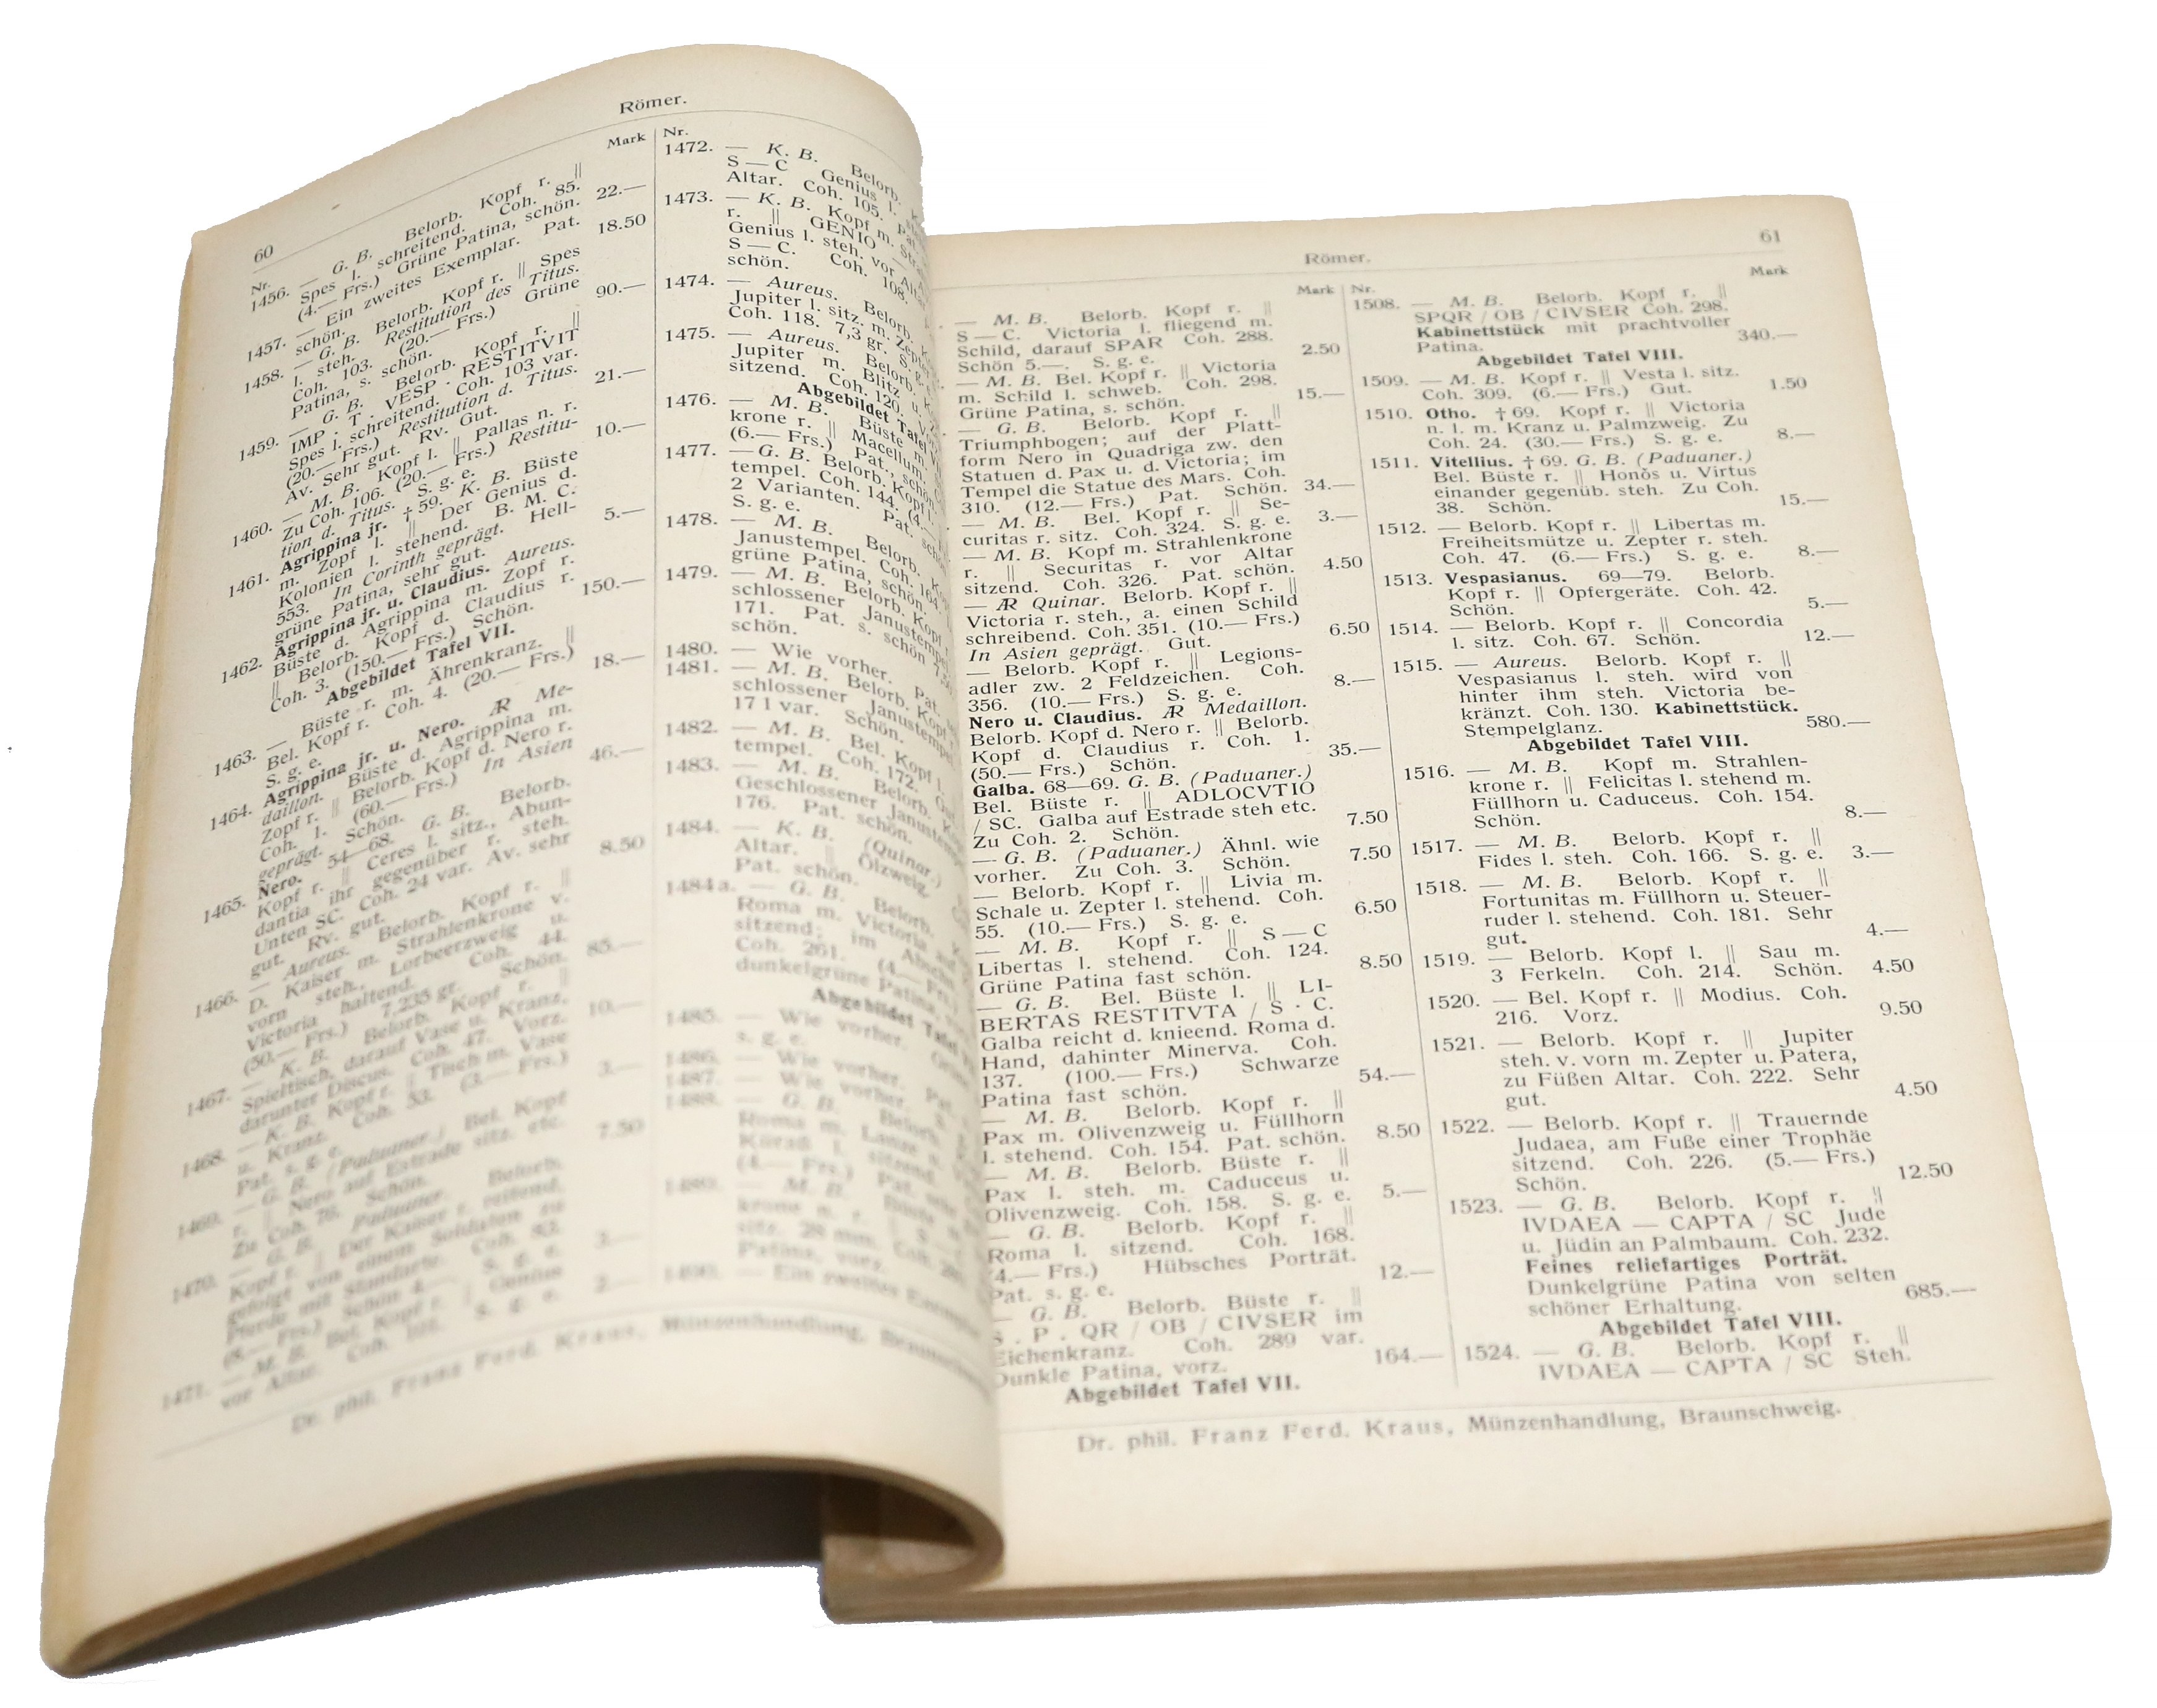 Römer.
60
Nr.
Mark
1456. — G. B. Belorb. Kopf r. ||
Spes l. schreitend. Coh. 85.
(4.— Frs.) Grüne Patina, schön. 22.—
1457. — Ein zweites Exemplar. Pat.
schön. 18.50
1458. — G. B. Belorb. Kopf r. || Spes
l. steh. Restitution des Titus.
Coh. 103. (20.— Frs.) Grüne
Patina, s. schön. 90.—
1459. — G. B. Belorb. Kopf r. ||
IMP · T · VESP · RESTITVIT
Spes l. schreitend. Coh. 103 var.
(20.— Frs.) Restitution d. Titus.
Av. Sehr gut. Rv. Gut. 21.—
1460. — M. B. Kopf l. || Pallas n. r.
Zu Coh. 106. (20.— Frs.) Restitu-
tion d. Titus. S. g. e. 10.—
1461. Agrippina jr. † 59. K. B. Büste
m. Zopf l. || Der Genius d.
Kolonien l. stehend. B. M. C.
553. In Corinth geprägt. Hell-
grüne Patina, sehr gut. 5.—
1462. Agrippina jr. u. Claudius. Aureus.
Büste d. Agrippina m. Zopf r.
|| Belorb. Kopf d. Claudius r.
Coh. 3. (150.— Frs.) Schön. 150.—
Abgebildet Tafel VII.
1463. — Büste r. m. Ährenkranz. ||
Bel. Kopf r. Coh. 4. (20.— Frs.)
S. g. e. 18.—
1464. Agrippina jr. u. Nero. Æ Me-
daillon. Büste d. Agrippina m.
Zopf r. || Belorb. Kopf d. Nero r.
Coh. 1. (60.— Frs.) In Asien
geprägt. Schön. 46.—
1465. Nero. 54—68. G. B. Belorb.
Kopf r. || Ceres l. sitz., Abun-
dantia ihr gegenüber r. steh.
Unten SC. Coh. 24 var. Av. sehr
gut. Rv. gut. 8.50
1466. — Aureus. Belorb. Kopf r. ||
D. Kaiser m. Strahlenkrone v.
vorn steh., Lorbeerzweig u.
Victoria haltend. Coh. 44.
(50.— Frs.) 7,235 gr. Schön. 85.—
1467. — K. B. Belorb. Kopf r. ||
Spieltisch, darauf Vase u. Kranz,
darunter Discus. Coh. 47. Vorz. 10.—
1468. — K. B. Kopf r. || Tisch m. Vase
u. Kranz. Coh. 53. (3.— Frs.)
Pat. s. g. e. 3.—
1469. — G. B. (Paduaner.) Bel. Kopf
r. || Nero auf Estrade sitz. etc.
Zu Coh. 76. Schön. 7.50
1470. — G. B. Paduaner. Belorb.
Kopf r. || Der Kaiser r. reitend,
gefolgt von einem Soldaten zu
Pferde mit Standarte.
1471. — M. B. Bel. Kopf r. || Genius
vor Altar. Coh. 101. S. g. e. 2.—
Nr.
1472. — K. B. Belorb.
S — C Genius l.
Altar. Coh. 105. Pat.
1473. — K. B. Kopf m.
r. || GENIO
Genius l. steh. vor Altar
S — C. Coh. 108.
schön.
1474. — Aureus. Belorb.
Jupiter l. sitz. m. Zepter
Coh. 118. 7,3 gr. S. g.
1475. — Aureus. Belorb.
Jupiter m. Blitz u.
sitzend. Coh. 120.
Abgebildet Tafel
1476. — M. B. Büste m.
krone r. || Macellum.
(6.— Frs.) Pat., schön.
1477. — G. B. Belorb. Kopf l.
tempel. Coh. 144. (4.
2 Varianten. Pat.
S. g. e.
1478. — M. B. Belorb.
Janustempel. Coh. 164.
grüne Patina, schön.
1479. — M. B. Belorb. Kopf
schlossener Janustempel
171. Pat. s. schön
schön.
1480. — Wie vorher. Pat.
1481. — M. B. Belorb. Kopf
schlossener Janustempel
171 var. Schön.
1482. — M. B. Bel. Kopf l.
tempel. Coh. 172.
1483. — M. B. Belorb.
Geschlossener Janustempel
176. Pat. schön.
1484. — K. B. (Quinar.)
Altar. || Ölzweig.
Pat. schön.
1484a. — G. B. Belorb.
Roma m. Victoria
sitzend; im Abschn.
Coh. 261. (4.— Frs.)
dunkelgrüne Patina,
Abgebildet Tafel
1485. — Wie vorher.
s. g. e.
1486. — Wie vorher.
1487. — Wie vorher.
1488. — G. B. Belorb.
Roma m. Lanze
1489. — M. B. Büste
1490. — Ein zweites Exemplar
Dr. phil. Franz Ferd. Kraus, Münzenhandlung, Braunschweig
Römer.
61
Mark
— M. B. Belorb. Kopf r. ||
S — C. Victoria l. fliegend m.
Schild, darauf SPAR Coh. 288.
Schön 5.—. S. g. e. 2.50
— M. B. Bel. Kopf r. || Victoria
m. Schild l. schweb. Coh. 298.
Grüne Patina, s. schön. 15.—
— G. B. Belorb. Kopf r. ||
Triumphbogen; auf der Platt-
form Nero in Quadriga zw. den
Statuen d. Pax u. d. Victoria; im
Tempel die Statue des Mars. Coh.
310. (12.— Frs.) Pat. Schön. 34.—
— M. B. Bel. Kopf r. || Se-
curitas r. sitz. Coh. 324. S. g. e. 3.—
— M. B. Kopf m. Strahlenkrone
r. || Securitas r. vor Altar
sitzend. Coh. 326. Pat. schön. 4.50
— Æ Quinar. Belorb. Kopf r. ||
Victoria r. steh., a. einen Schild
schreibend. Coh. 351. (10.— Frs.)
In Asien geprägt. Gut. 6.50
— Belorb. Kopf r. || Legions-
adler zw. 2 Feldzeichen. Coh.
356. (10.— Frs.) S. g. e. 8.—
Nero u. Claudius. Æ Medaillon.
Belorb. Kopf d. Nero r. || Belorb.
Kopf d. Claudius r. Coh. 1.
(50.— Frs.) Schön. 35.—
Galba. 68—69. G. B. (Paduaner.)
Bel. Büste r. || ADLOCVTIO
/ SC. Galba auf Estrade steh etc.
Zu Coh. 2. Schön. 7.50
— G. B. (Paduaner.) Ähnl. wie
vorher. Zu Coh. 3. Schön. 7.50
— Belorb. Kopf r. || Livia m.
Schale u. Zepter l. stehend. Coh.
55. (10.— Frs.) S. g. e. 6.50
— M. B. Kopf r. || S — C
Libertas l. stehend. Coh. 124.
Grüne Patina fast schön. 8.50
— G. B. Bel. Büste l. || LI-
BERTAS RESTITVTA / S · C.
Galba reicht d. knieend. Roma d.
Hand, dahinter Minerva. Coh.
137. (100.— Frs.) Schwarze
Patina fast schön. 54.—
— M. B. Belorb. Kopf r. ||
Pax m. Olivenzweig u. Füllhorn
l. stehend. Coh. 154. Pat. schön. 8.50
— M. B. Belorb. Büste r. ||
Pax l. steh. m. Caduceus u.
Olivenzweig. Coh. 158. S. g. e. 5.—
— G. B. Belorb. Kopf r. ||
Roma l. sitzend. Coh. 168.
(4.— Frs.) Hübsches Porträt.
Pat. s. g. e. 12.—
— G. B. Belorb. Büste r. ||
S . P . QR / OB / CIVSER im
Eichenkranz. Coh. 289 var.
Dunkle Patina, vorz. 164.—
Abgebildet Tafel VII.
Nr.
Mark
1508. — M. B. Belorb. Kopf r. ||
SPQR / OB / CIVSER Coh. 298.
Kabinettstück mit prachtvoller
Patina. 340.—
Abgebildet Tafel VIII.
1509. — M. B. Kopf r. || Vesta l. sitz.
Coh. 309. (6.— Frs.) Gut. 1.50
1510. Otho. † 69. Kopf r. || Victoria
n. l. m. Kranz u. Palmzweig. Zu
Coh. 24. (30.— Frs.) S. g. e. 8.—
1511. Vitellius. † 69. G. B. (Paduaner.)
Bel. Büste r. || Honos u. Virtus
einander gegenüb. steh. Zu Coh.
38. Schön. 15.—
1512. — Belorb. Kopf r. || Libertas m.
Freiheitsmütze u. Zepter r. steh.
Coh. 47. (6.— Frs.) S. g. e. 8.—
1513. Vespasianus. 69—79. Belorb.
Kopf r. || Opfergeräte. Coh. 42.
Schön. 5.—
1514. — Belorb. Kopf r. || Concordia
l. sitz. Coh. 67. Schön. 12.—
1515. — Aureus. Belorb. Kopf r. ||
Vespasianus l. steh. wird von
hinter ihm steh. Victoria be-
kränzt. Coh. 130. Kabinettstück.
Stempelglanz. 580.—
Abgebildet Tafel VIII.
1516. — M. B. Kopf m. Strahlen-
krone r. || Felicitas l. stehend m.
Füllhorn u. Caduceus. Coh. 154.
Schön. 8.—
1517. — M. B. Belorb. Kopf r. ||
Fides l. steh. Coh. 166. S. g. e. 3.—
1518. — M. B. Belorb. Kopf r. ||
Fortunitas m. Füllhorn u. Steuer-
ruder l. stehend. Coh. 181. Sehr
gut. 4.—
1519. — Belorb. Kopf l. || Sau m.
3 Ferkeln. Coh. 214. Schön. 4.50
1520. — Bel. Kopf r. || Modius. Coh.
216. Vorz. 9.50
1521. — Belorb. Kopf r. || Jupiter
steh. v. vorn m. Zepter u. Patera,
zu Füßen Altar. Coh. 222. Sehr
gut. 4.50
1522. — Belorb. Kopf r. || Trauernde
Judaea, am Fuße einer Trophäe
sitzend. Coh. 226. (5.— Frs.)
Schön. 12.50
1523. — G. B. Belorb. Kopf r. ||
IVDAEA — CAPTA / SC Jude
u. Jüdin an Palmbaum. Coh. 232.
Feines reliefartiges Porträt.
Dunkelgrüne Patina von selten
schöner Erhaltung. 685.—
Abgebildet Tafel VIII.
1524. — G. B. Belorb. Kopf r. ||
IVDAEA — CAPTA / SC Steh.
Dr. phil. Franz Ferd. Kraus, Münzenhandlung, Braunschweig.